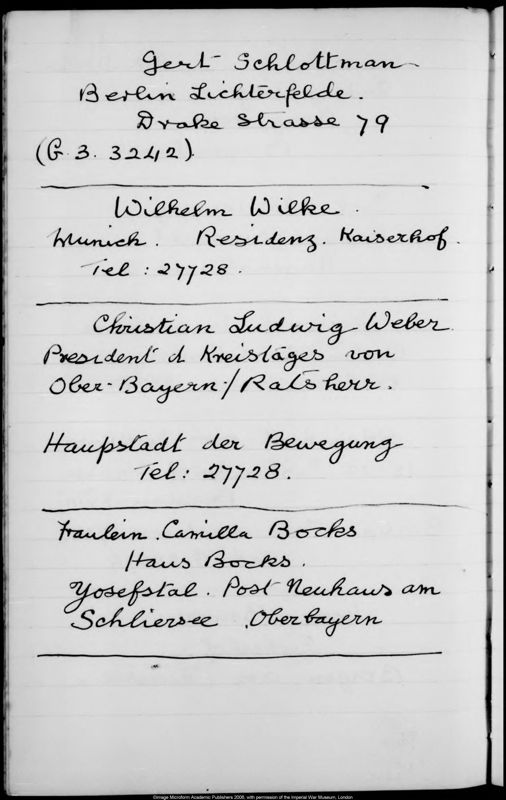 Gert Schlottman
Berlin Lichterfelde.
Drake Strasse 79
(G. 3. 3242).
Wilhelm Wilke.
Munich. Residenz. Kaiserhof.
Tel : 27728.
Christian Ludwig Weber
President d Kreistages von
Ober-Bayern-/Ratsherr.
Haupstadt der Bewegung
Tel: 27728.
Fraulein. Camilla Bocks
Haus Bocks.
Yosefstal. Post Neuhaus am
Schliersee Oberbayern
©Image Microform Academic Publishers 2006, with permission of the Imperial War Museum, London